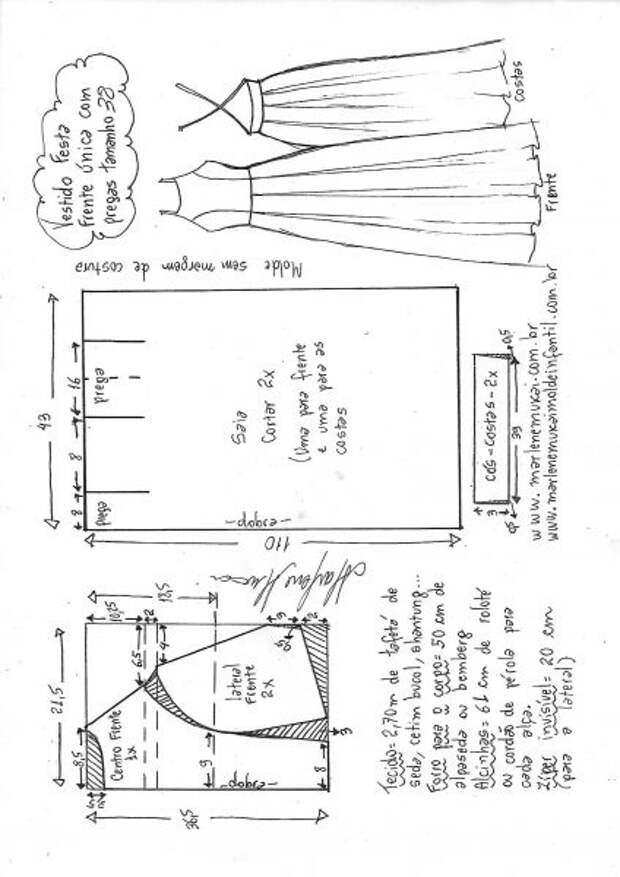 Vestido Festa
Frente única com
pregas tamanho 38
costas
Frente
Molde sem margem de costura
43
8
8
16
prega
prega
Saia
Cortar 2x
(Uma para frente
e uma para as
costas
-dobra-
110
cós-costas-2x
39
3
0,5
www.marlenemukai.com.br
www.marlenemukaimoldeinfantil.com.br
Marlene Mukai
21,5
8,5
36,5
10,25
2
18,5
6,5
4
3
2
9
8
3
Centro Frente
1x
lateral
Frente
2x
-dobra-
Tecido= 2,70 m de tafetá de
seda, cetim bucol, shantung...
Forro para o corpo= 50 cm de
alpaseda ou bemberg
Alcinhas= 61 cm de rolotê
ou cordão de pérola para
cada alça.
Zíper invisível= 20 cm
(para a lateral)